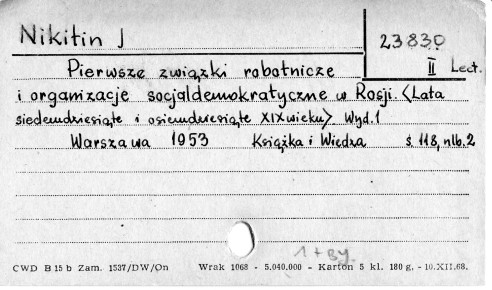 Nikitin J
23830
II Lect.
Pierwsze związki robotnicze
i organizacje socjaldemokratyczne w Rosji. <Lata
siedemdziesiąte i osiemdziesiąte XIX wieku> Wyd.1
Warszawa 1953 Książka i Wiedza s. 118, nlb. 2
1 + By.
CWD B 15 b Zam. 1537/DW/On Wrak 1068 - 5.040.000 - Karton 5 kl. 180 g. - 10.XII.68.